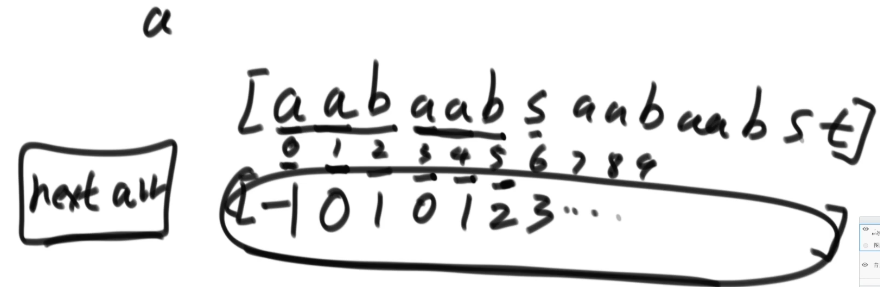 a
[a a b a a b s a a b a a b s t]
0 1 2 3 4 5 6 7 8 9
next arr [-1 0 1 0 1 2 3 ... ]